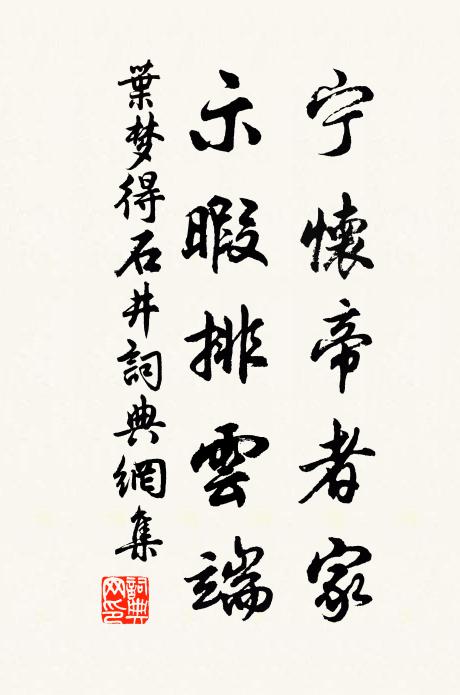 宁懷帝者家
示暇排雲端
葉梦得石井詞典網集
詞典网印